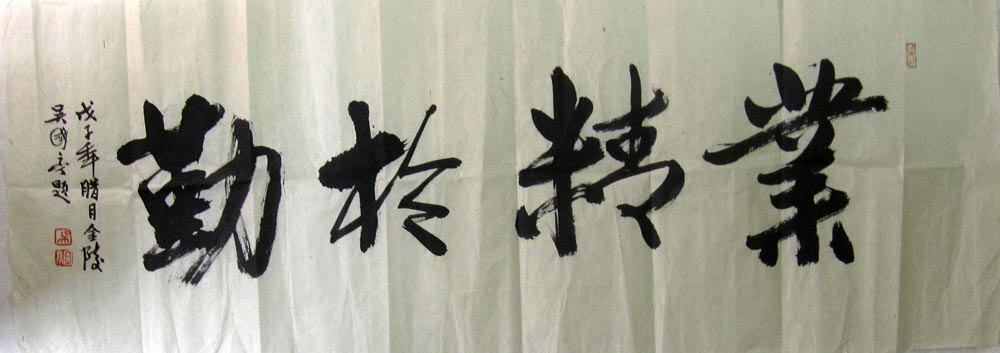 業精於勤
戊子年腊月金陵
吴國亮題